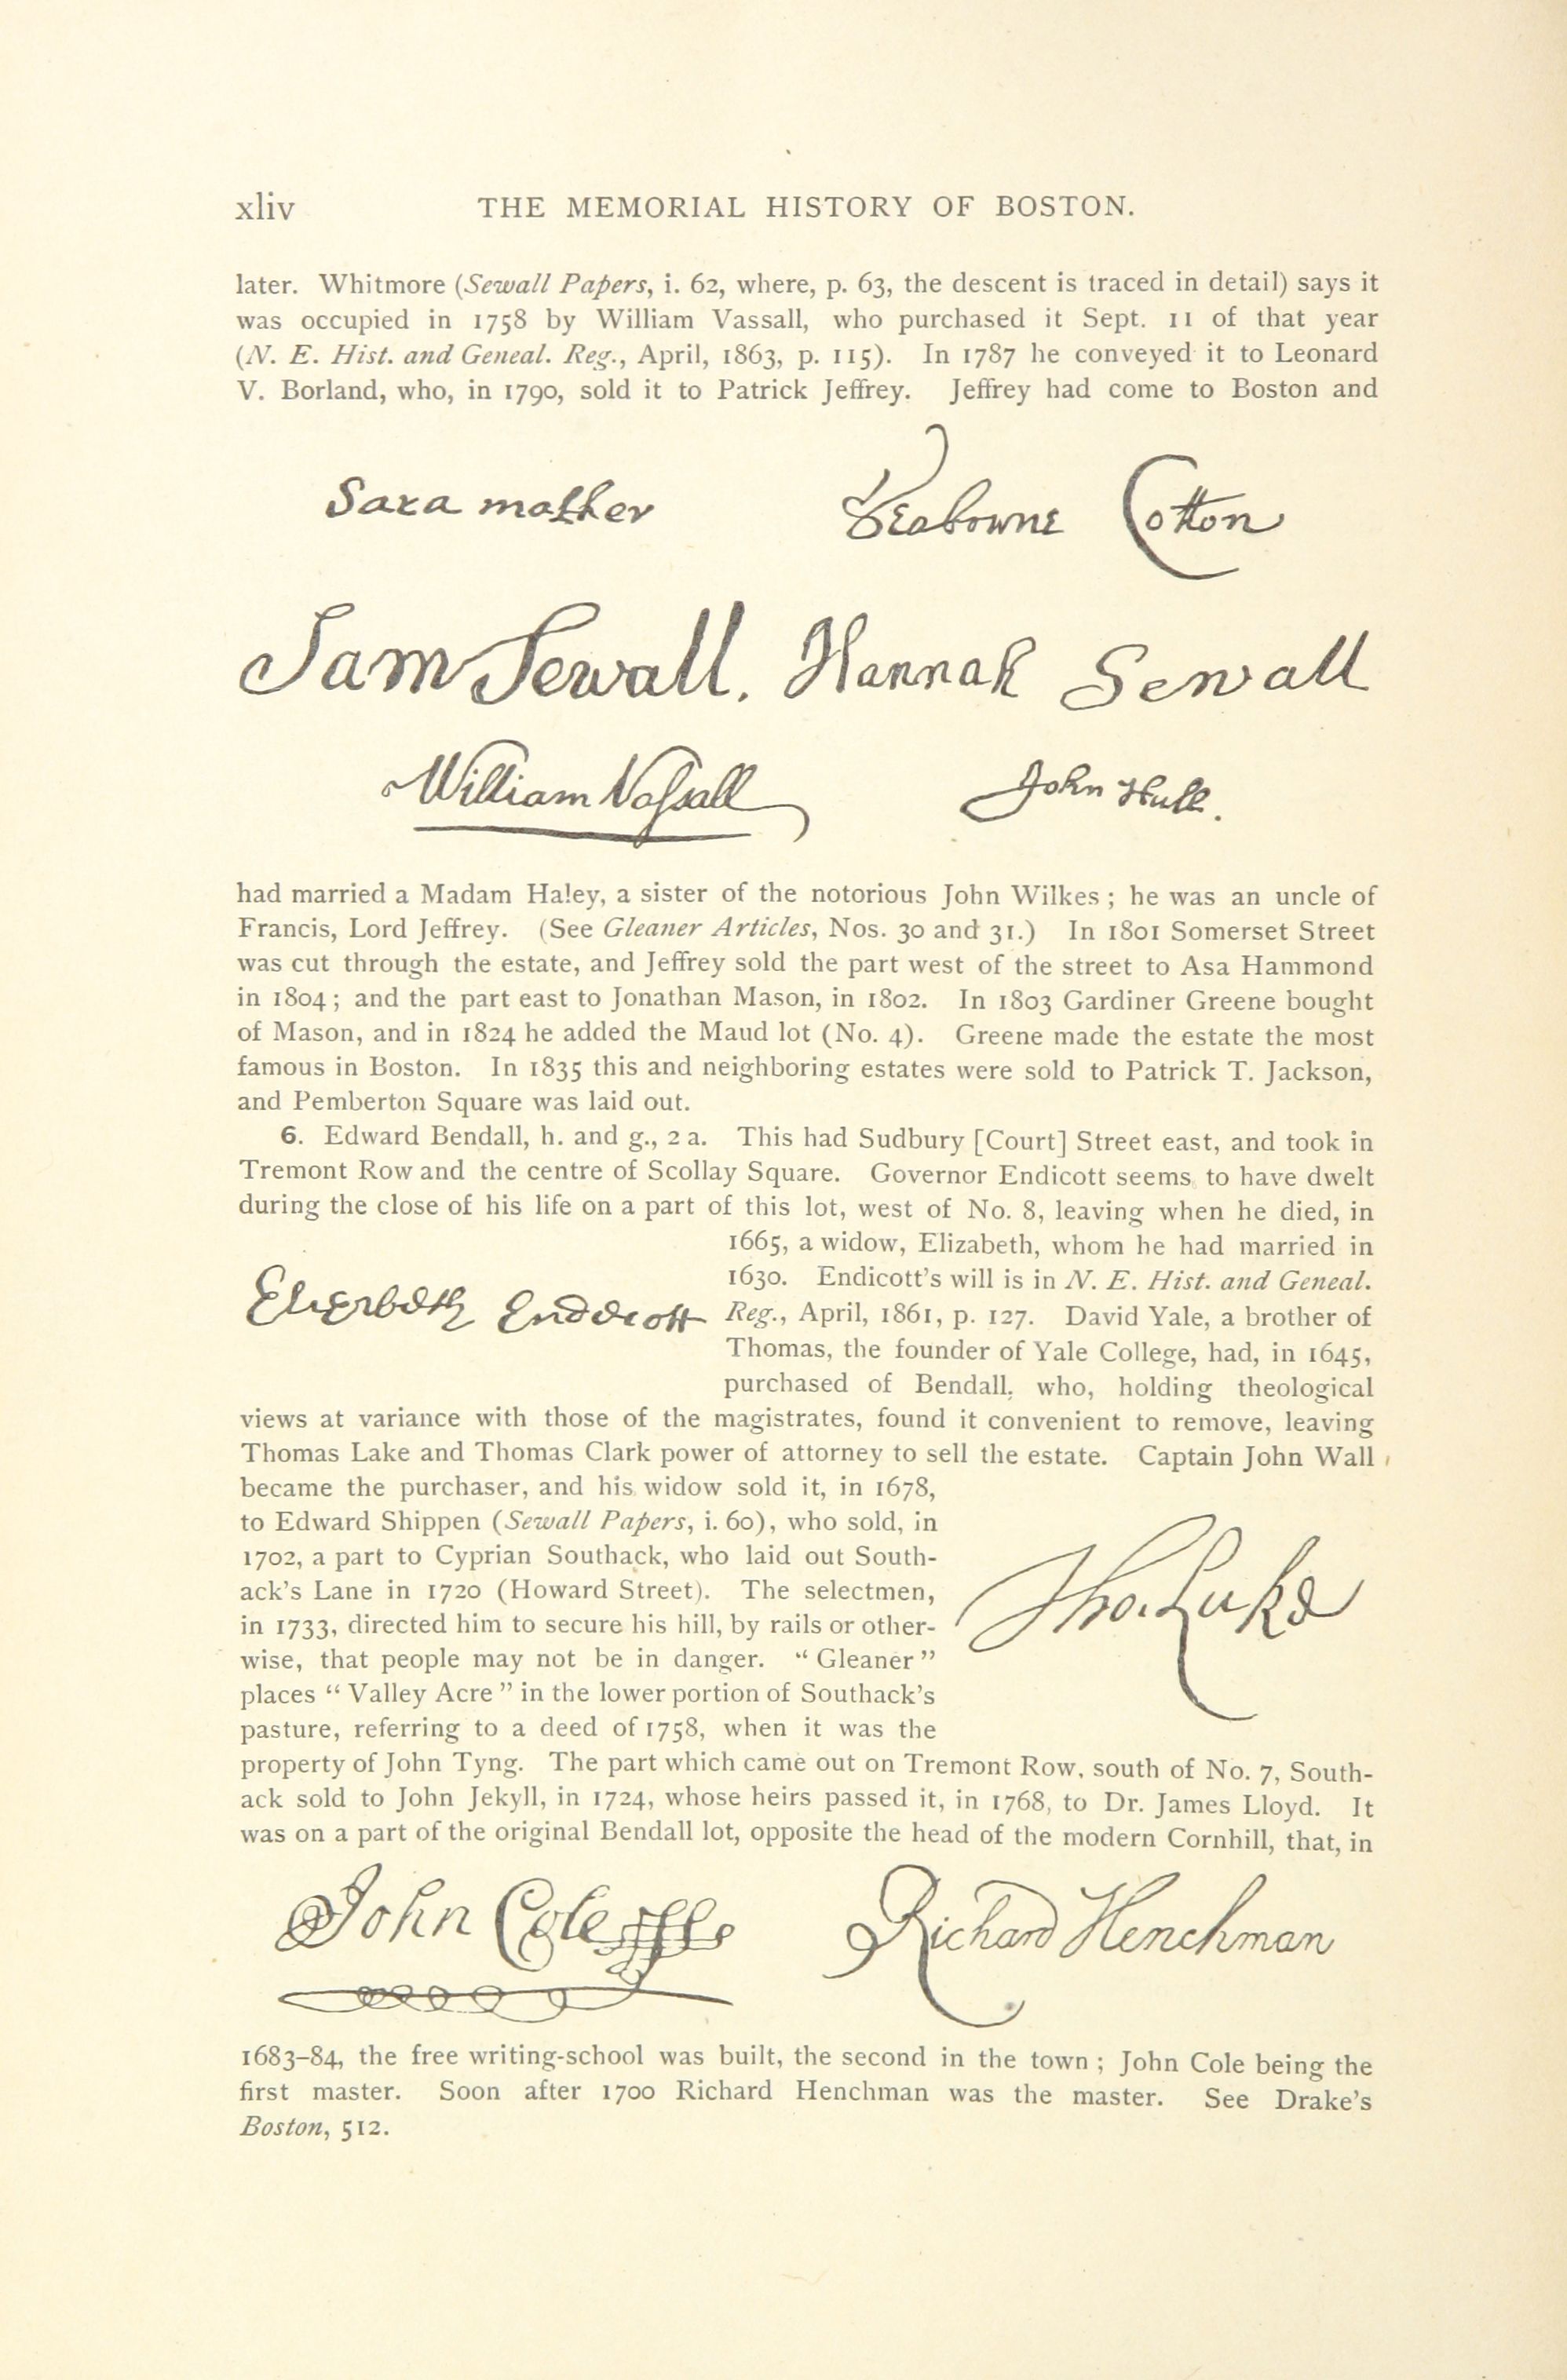 xliv THE MEMORIAL HISTORY OF BOSTON.
later. Whitmore (Sewall Papers, i. 62, where, p. 63, the descent is traced in detail) says it
was occupied in 1758 by William Vassall, who purchased it Sept. 11 of that year
(N. E. Hist. and Geneal. Reg., April, 1863, p. 115). In 1787 he conveyed it to Leonard
V. Borland, who, in 1790, sold it to Patrick Jeffrey. Jeffrey had come to Boston and
Sara mather Seaborne Cotton
Sam Sewall. Hannah Sewall
William Vassall John Hull.
had married a Madam Haley, a sister of the notorious John Wilkes; he was an uncle of
Francis, Lord Jeffrey. (See Gleaner Articles, Nos. 30 and 31.) In 1801 Somerset Street
was cut through the estate, and Jeffrey sold the part west of the street to Asa Hammond
in 1804; and the part east to Jonathan Mason, in 1802. In 1803 Gardiner Greene bought
of Mason, and in 1824 he added the Maud lot (No. 4). Greene made the estate the most
famous in Boston. In 1835 this and neighboring estates were sold to Patrick T. Jackson,
and Pemberton Square was laid out.
6. Edward Bendall, h. and g., 2 a. This had Sudbury [Court] Street east, and took in
Tremont Row and the centre of Scollay Square. Governor Endicott seems to have dwelt
during the close of his life on a part of this lot, west of No. 8, leaving when he died, in
1665, a widow, Elizabeth, whom he had married in
1630. Endicott's will is in N. E. Hist. and Geneal.
Elizabeth Endecott
Reg., April, 1861, p. 127. David Yale, a brother of
Thomas, the founder of Yale College, had, in 1645,
purchased of Bendall, who, holding theological
views at variance with those of the magistrates, found it convenient to remove, leaving
Thomas Lake and Thomas Clark power of attorney to sell the estate. Captain John Wall
became the purchaser, and his widow sold it, in 1678,
to Edward Shippen (Sewall Papers, i. 60), who sold, in
1702, a part to Cyprian Southack, who laid out South-
ack's Lane in 1720 (Howard Street). The selectmen,
in 1733, directed him to secure his hill, by rails or other-
wise, that people may not be in danger. "Gleaner"
places "Valley Acre" in the lower portion of Southack's
pasture, referring to a deed of 1758, when it was the
Tho. Lake
property of John Tyng. The part which came out on Tremont Row, south of No. 7, South-
ack sold to John Jekyll, in 1724, whose heirs passed it, in 1768, to Dr. James Lloyd. It
was on a part of the original Bendall lot, opposite the head of the modern Cornhill, that, in
John Cole Richard Henchman
1683–84, the free writing-school was built, the second in the town; John Cole being the
first master. Soon after 1700 Richard Henchman was the master. See Drake's
Boston, 512.